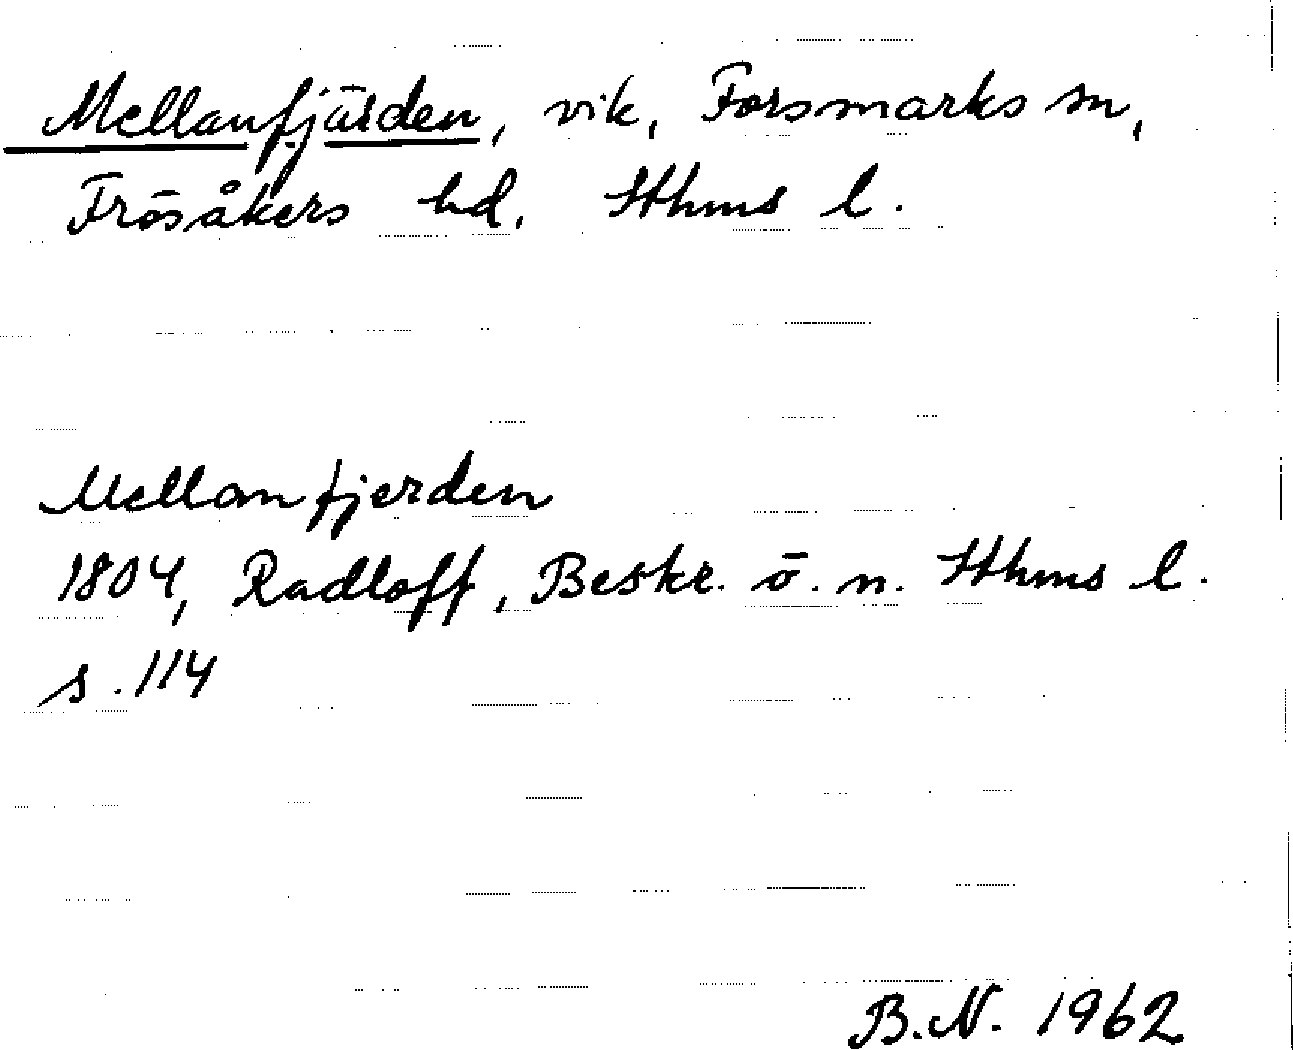 Mellanfjärden, vik, Forsmarks sn,
Frösåkers hd. Sthms l.
Mellanfjerden
1804, Radloff, Beskr. ö. n. Sthms l.
s. 114
B.N. 1962